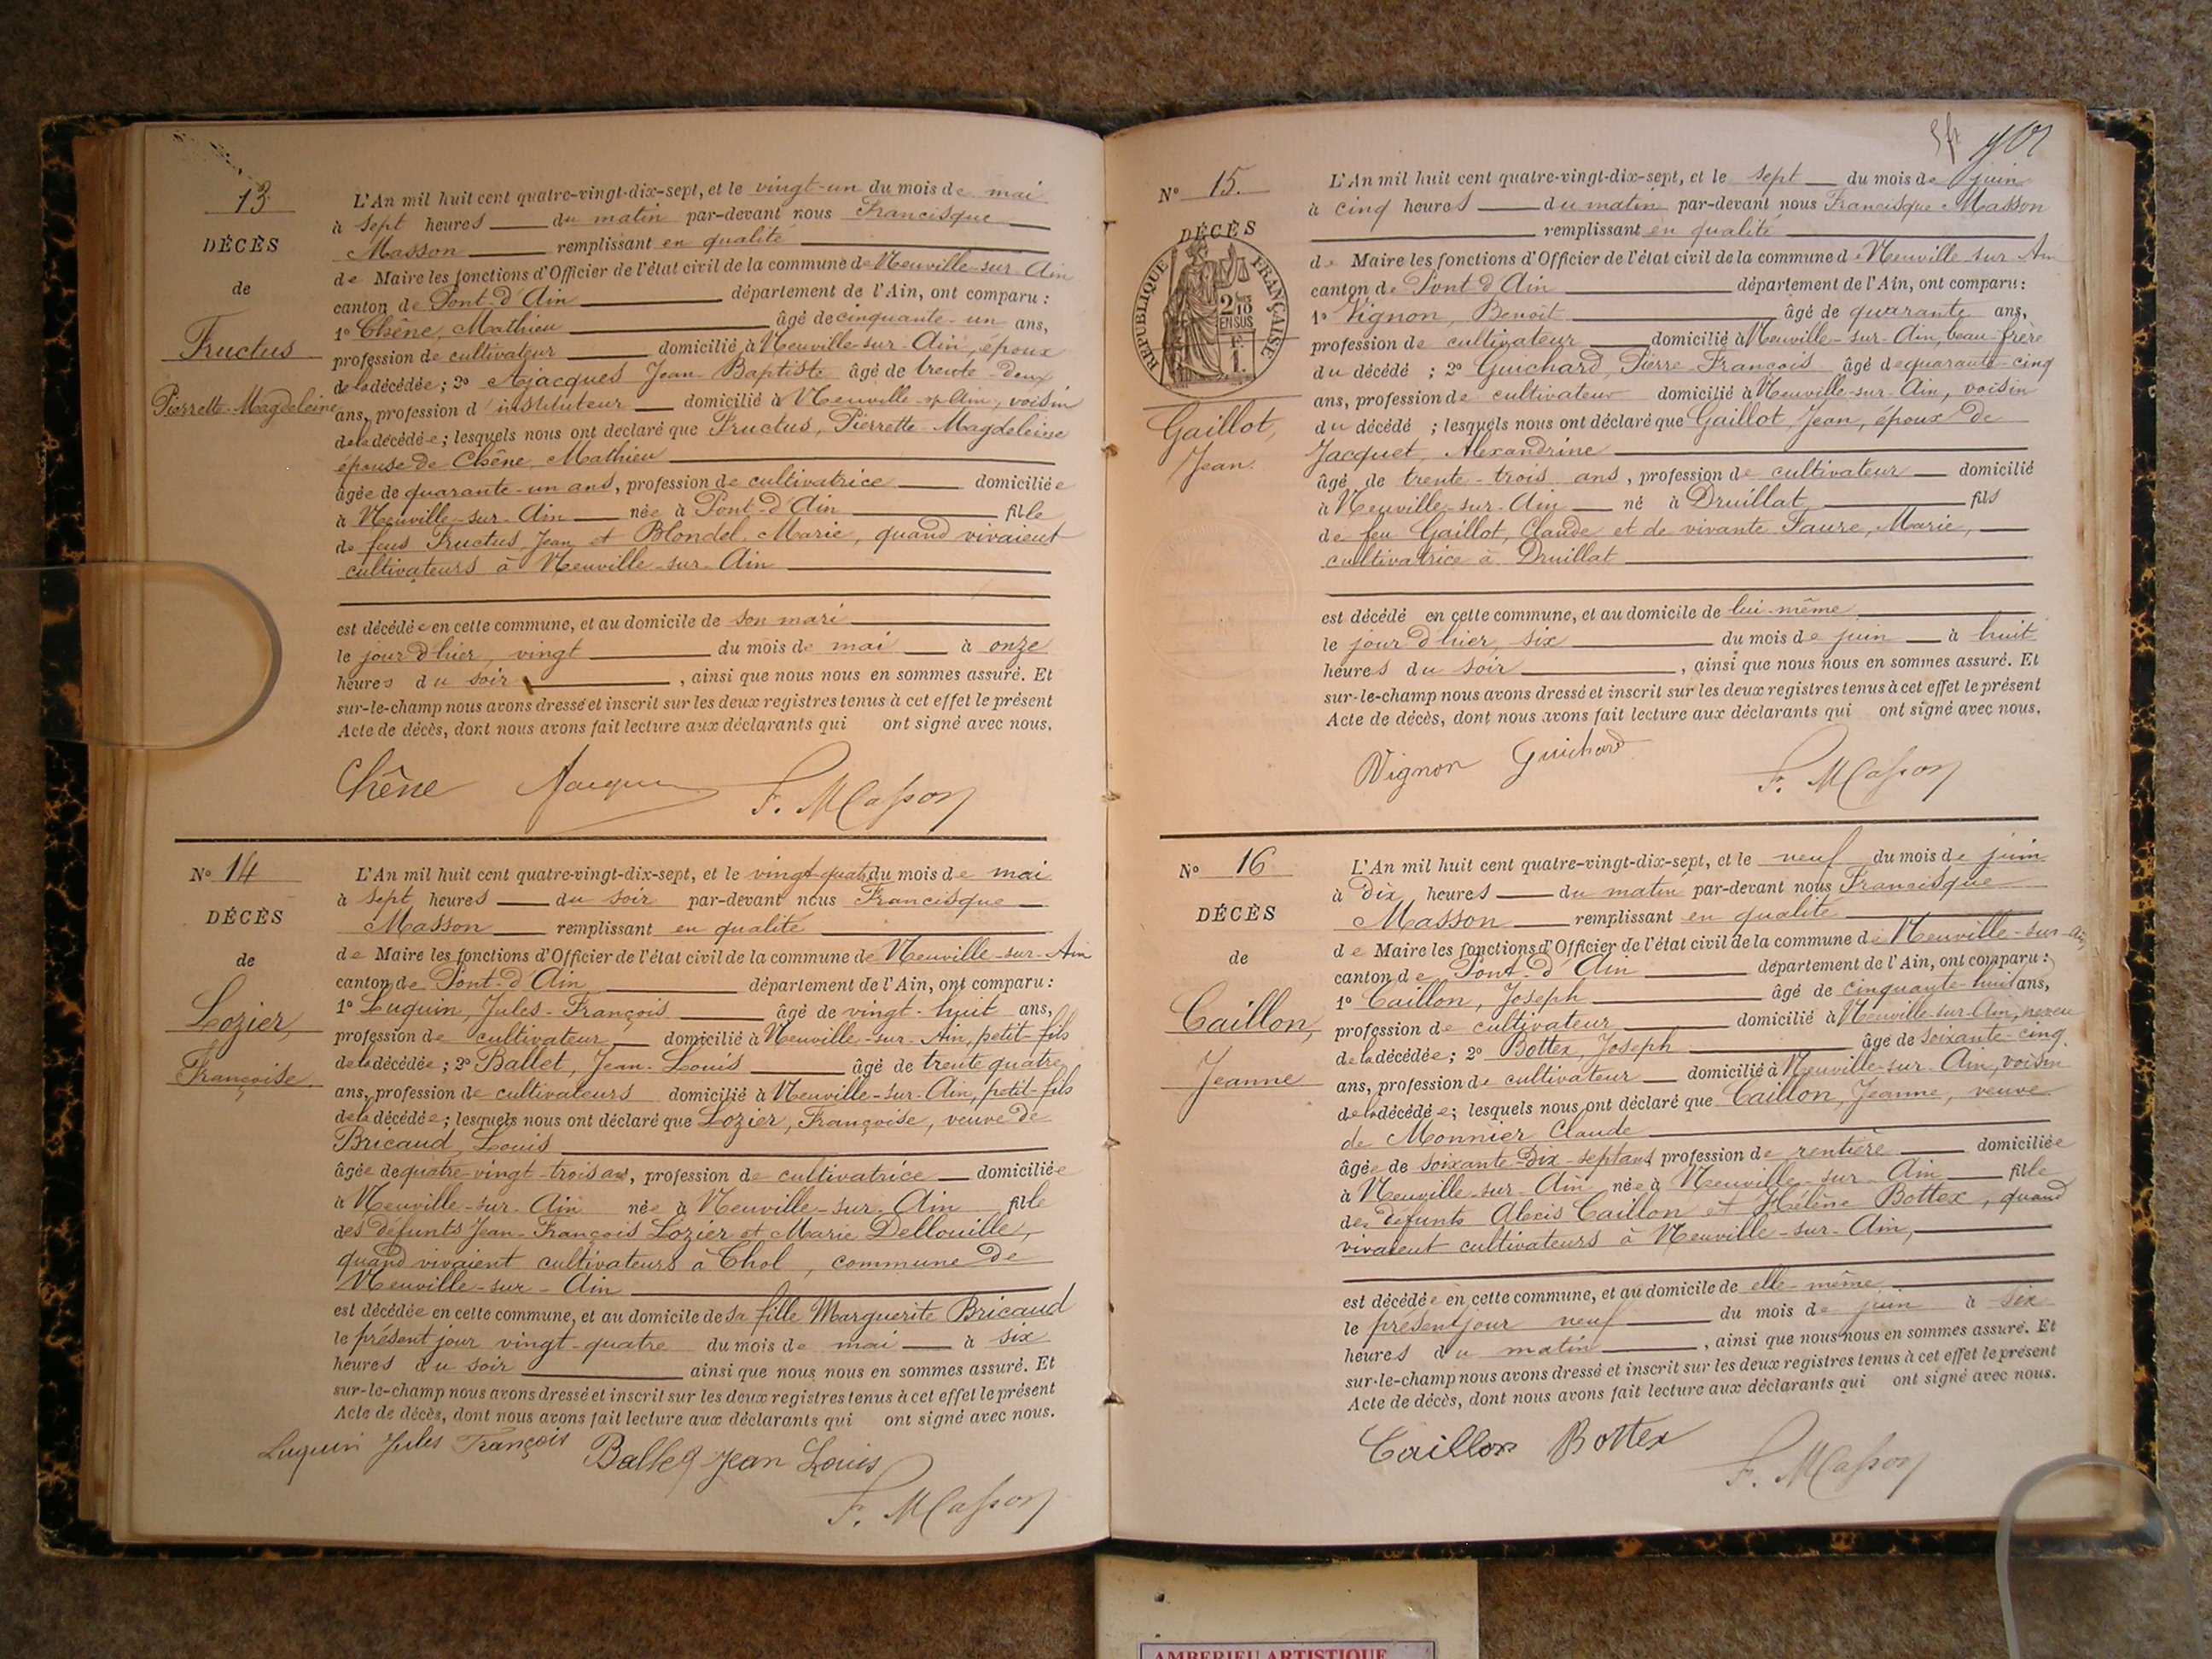 13
DÉCÈS
de
Fructus
Pierrette-Magdeleine
L'An mil huit cent quatre-vingt-dix-sept, et le vingt-un du mois de mai
à sept heures du matin par-devant nous Francisque
Masson remplissant en qualité
de Maire les fonctions d'Officier de l'état civil de la commune de Neuville-sur-Ain
canton de Pont-d'Ain département de l'Ain, ont comparu :
1º Chêne, Mathieu âgé de cinquante-un ans,
profession de cultivateur domicilié à Neuville-sur-Ain, époux
de la décédée ; 2º Ajacques Jean-Baptiste âgé de trente-deux
ans, profession d'instituteur domicilié à Neuville-s-Ain, voisin
de la décédée ; lesquels nous ont déclaré que Fructus, Pierrette-Magdeleine
épouse de Chêne, Mathieu
âgée de quarante-un ans, profession de cultivatrice domiciliée
à Neuville-sur-Ain née à Pont-d'Ain fille
de feus Fructus, Jean et Blondel, Marie, quand vivaient
cultivateurs à Neuville-sur-Ain
est décédée en cette commune, et au domicile de son mari
le jour d'hier, vingt du mois de mai à onze
heures du soir, ainsi que nous nous en sommes assuré. Et
sur-le-champ nous avons dressé et inscrit sur les deux registres tenus à cet effet le présent
Acte de décès, dont nous avons fait lecture aux déclarants qui ont signé avec nous.
Chêne F. Masson
Nº 14
DÉCÈS
de
Lozier,
Françoise.
L'An mil huit cent quatre-vingt-dix-sept, et le vingt-quatre du mois de mai
à sept heures du soir par-devant nous Francisque
Masson remplissant en qualité
de Maire les fonctions d'Officier de l'état civil de la commune de Neuville-sur-Ain
canton de Pont-d'Ain département de l'Ain, ont comparu :
1º Luquin, Jules-François âgé de vingt-huit ans,
profession de cultivateur domicilié à Neuville-sur-Ain, petit-fils
de la décédée ; 2º Ballet, Jean-Louis âgé de trente quatre
ans, profession de cultivateurs domicilié à Neuville-sur-Ain, petit-fils
de la décédée ; lesquels nous ont déclaré que Lozier, Françoise, veuve de
Bricaud, Louis
âgée de quatre-vingt-trois ans, profession de cultivatrice domiciliée
à Neuville-sur-Ain née à Neuville-sur-Ain fille
des défunts Jean-François Lozier et Marie Dellouille,
quand vivaient cultivateurs à Chol, commune de
Neuville-sur-Ain
est décédée en cette commune, et au domicile de sa fille Marguerite Bricaud
le présent jour vingt-quatre du mois de mai à six
heures du soir ainsi que nous nous en sommes assuré. Et
sur-le-champ nous avons dressé et inscrit sur les deux registres tenus à cet effet le présent
Acte de décès, dont nous avons fait lecture aux déclarants qui ont signé avec nous.
Luquin Jules François Ballet Jean Louis
F. Masson
Nº 15.
DÉCÈS
RÉPUBLIQUE FRANÇAISE
2/10
EN SUS
F.
1.
Gaillot,
Jean.
L'An mil huit cent quatre-vingt-dix-sept, et le sept du mois de juin
à cinq heures du matin par-devant nous Francisque Masson
remplissant en qualité
de Maire les fonctions d'Officier de l'état civil de la commune de Neuville-sur-Ain
canton de Pont d'Ain département de l'Ain, ont comparu :
1º Vignon, Benoit âgé de quarante ans,
profession de cultivateur domicilié à Neuville-sur-Ain, beau-frère
du décédé ; 2º Guichard, Pierre-François âgé de quarante-cinq
ans, profession de cultivateur domicilié à Neuville-sur-Ain, voisin
du décédé ; lesquels nous ont déclaré que Gaillot, Jean, époux de
Jacquet, Alexandrine
âgé de trente-trois ans, profession de cultivateur domicilié
à Neuville-sur-Ain né à Druillat fils
de feu Gaillot, Claude et de vivante Faure, Marie,
cultivatrice à Druillat
est décédé en cette commune, et au domicile de lui-même
le jour d'hier, six du mois de juin à huit
heures du soir, ainsi que nous nous en sommes assuré. Et
sur-le-champ nous avons dressé et inscrit sur les deux registres tenus à cet effet le présent
Acte de décès, dont nous avons fait lecture aux déclarants qui ont signé avec nous.
Vignon Guichard F. Masson
Nº 16
DÉCÈS
de
Caillon,
Jeanne
L'An mil huit cent quatre-vingt-dix-sept, et le neuf du mois de juin
à dix heures du matin par-devant nous Francisque
Masson remplissant en qualité
de Maire les fonctions d'Officier de l'état civil de la commune de Neuville-sur-Ain,
canton de Pont-d'Ain département de l'Ain, ont comparu :
1º Caillon, Joseph âgé de cinquante-huit ans,
profession de cultivateur domicilié à Neuville-sur-Ain, neveu
de la décédée ; 2º Bottex, Joseph âgé de soixante-cinq
ans, profession de cultivateur domicilié à Neuville-sur-Ain, voisin
de la décédée ; lesquels nous ont déclaré que Caillon, Jeanne, veuve
de Monnier Claude
âgée de soixante-dix-sept ans, profession de rentière domiciliée
à Neuville-sur-Ain née à Neuville-sur-Ain fille
des défunts Alexis Caillon et Hélène Bottex, quand
vivaient cultivateurs à Neuville-sur-Ain,
est décédée en cette commune, et au domicile de elle-même
le présent jour neuf du mois de juin à six
heures du matin, ainsi que nous nous en sommes assuré. Et
sur-le-champ nous avons dressé et inscrit sur les deux registres tenus à cet effet le présent
Acte de décès, dont nous avons fait lecture aux déclarants qui ont signé avec nous.
Caillon Bottex F. Masson
AMBERIEU ARTISTIQUE